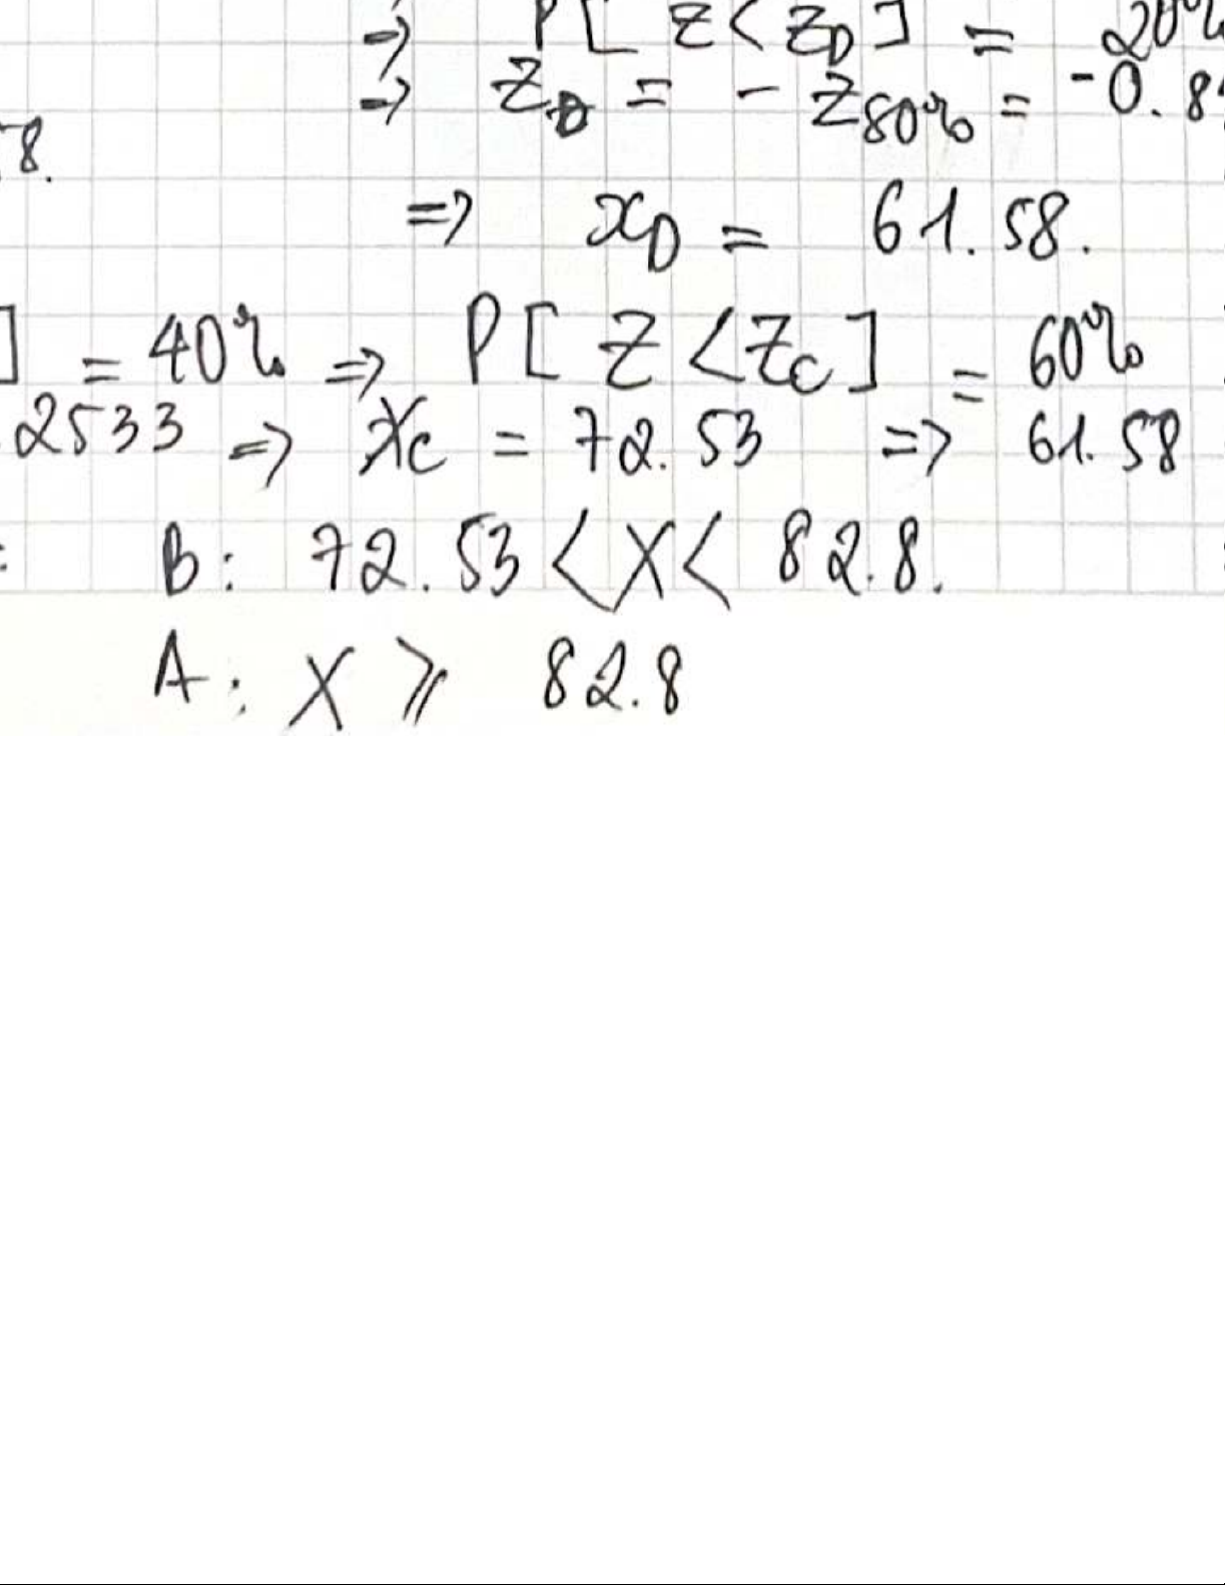 => P[ Z < Z_D ] = 20%
=> Z_D = - Z_80% = -0.8
8.
=> x_D = 61.58.
] = 40% => P[ Z < Z_C ] = 60%
.2533 => X_C = 72.53 => 61.58
: B: 72.53 < X < 82.8.
A: X ⩾ 82.8